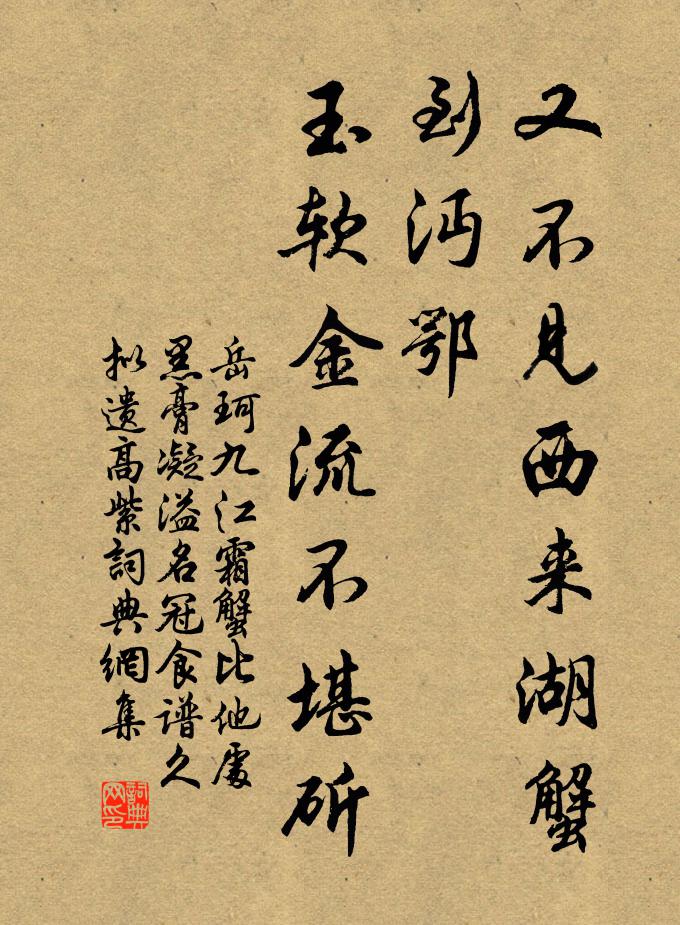 又不见西来湖蟹
到沔鄂
玉软金流不堪斫
岳珂九江霜蟹比他處
黑膏凝溢名冠食谱久
拟遗高紫詞典網集
詞典
网印